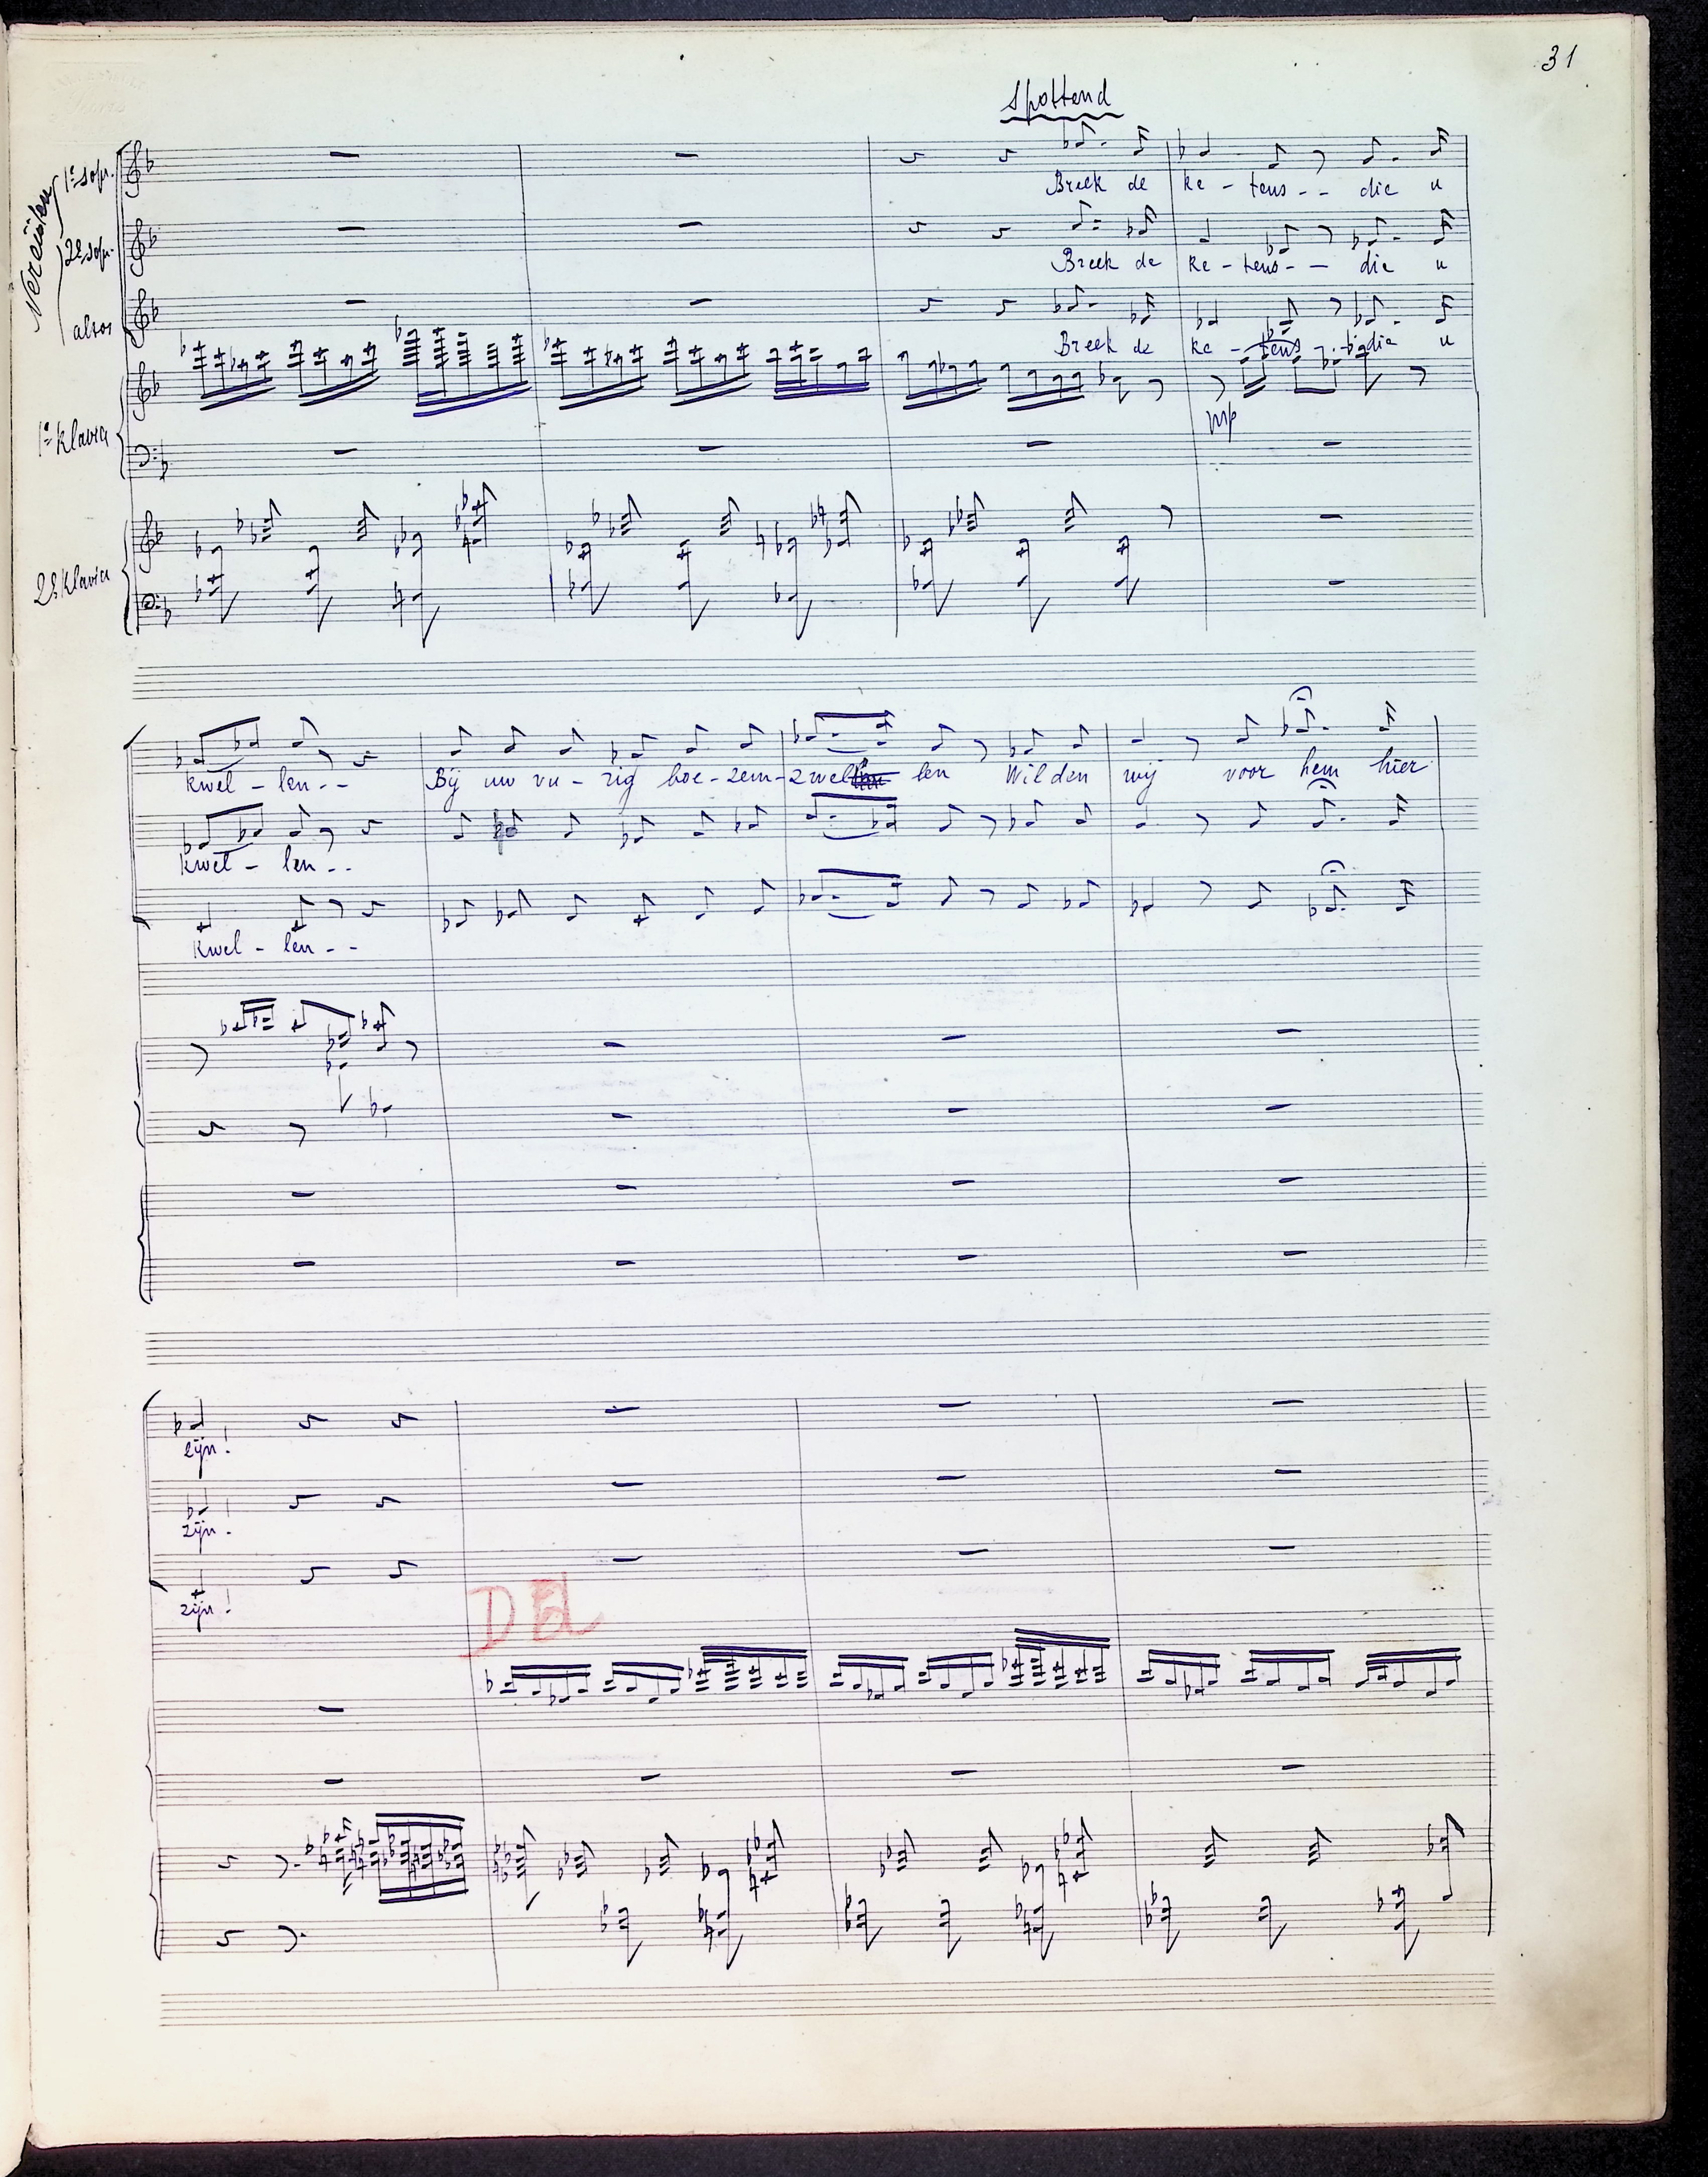 31
Spottend
Nereïden
1e sopr.
Breek de ke - tens - - die u
2e sopr.
Breek de ke - tens - - die u
altos
Breek de ke - tens - - die u
1e klavier
mp
2e klavier
kwel - len - - Bij uw vu - rig boe - zem - zwel len Wilden wij voor hem hier
kwel - len - -
kwel - len - -
zijn!
zijn!
zijn!
DEL